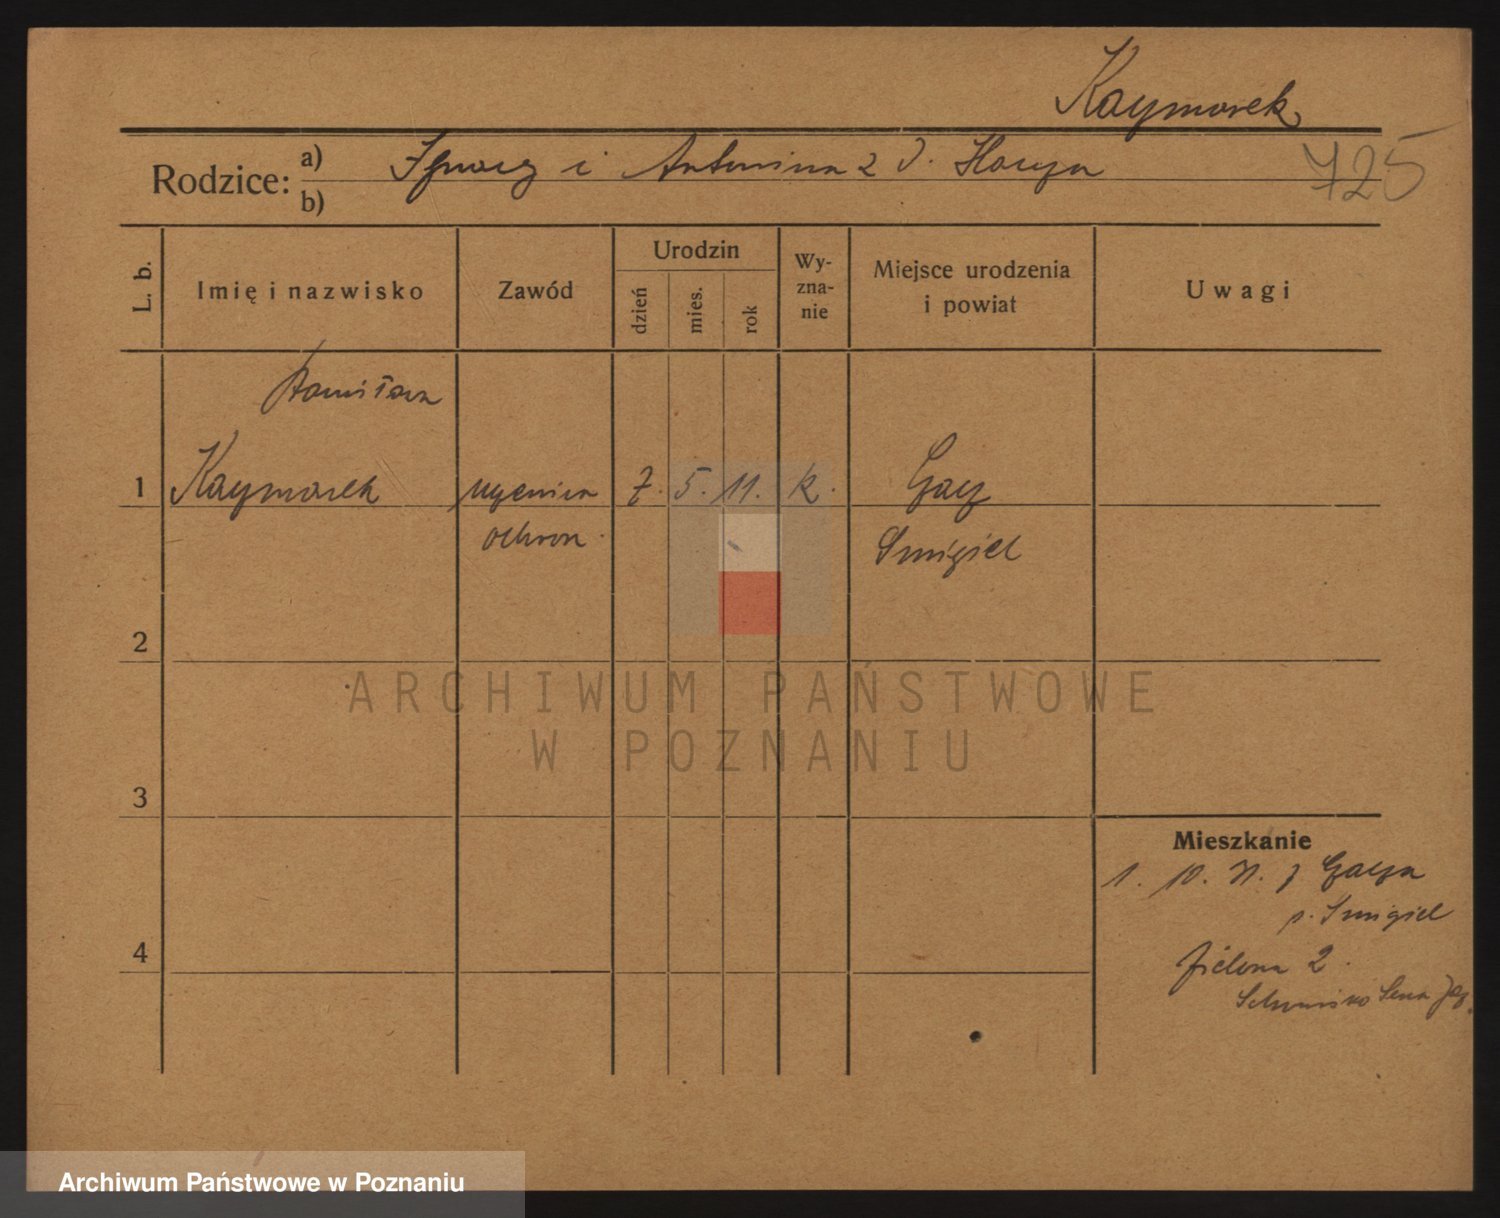 Kaczmarek
725
Rodzice: a) Ignacy i Antonina z d.
b)
L. b.
Imię i nazwisko
Zawód
Urodzin
dzień
mies.
rok
Wy-
zna-
nie
Miejsce urodzenia
i powiat
Uwagi
Stanisława
1 Kaczmarek uczenica 7. 5. 11. k. Gacz
ochron. Smigiel
2
ARCHIWUM PAŃSTWOWE
W POZNANIU
3
Mieszkanie
1. 10. z
p. Smigiel
4
Zielona 2.
Schronisko
Archiwum Państwowe w Poznaniu